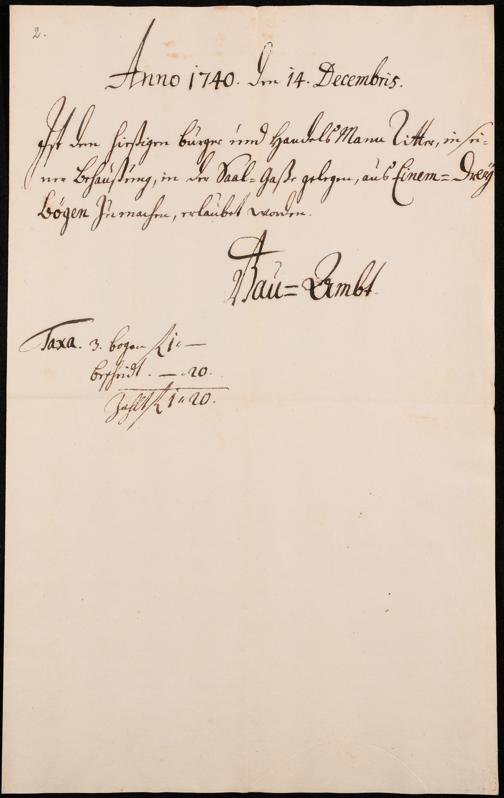 2.
Anno 1740. den 14. Decembris.
Ist dem hießigen burger und Handels Mann Ritter, in sei-
ner Behaußung, in der Saal-Gaße gelegen, aus Einem= Drey
bögen Zu machen, erlaubet worden.
Bau= Ambt.
Taxa. 3. bogen f 1 „ —
bescheidt. — „ 20.
Zahlt f 1 „ 20.